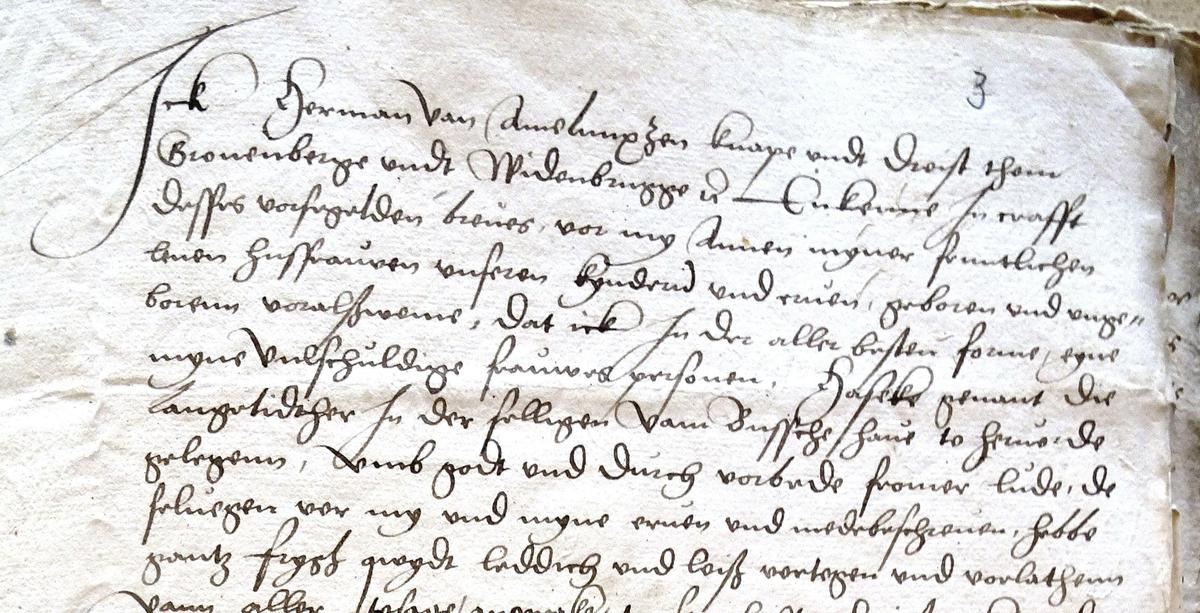 3
Ick Herman van Amelunxzen knape undt droist thom
Gronenberge undt Widenbrugge Enkenne In crafft
desses vorsegelden breues, vor my Annen myner semtlichen
leuen husfrauwen unseren kynderen und eruen, geboren und unge„
borenn voralßweme, dat ick In der aller besten forme, eyne
myne vulschuldige frauwes personen, Haseke genant die
Langetidther In der selligen vam Bussche haue to heruerde
gelegenn, vmb godt und durch vorbede fromer lude, de
seluegen vor my und myne eruen und medebeschreuen, hebbe
gantz frygh qwydt leddich und loiß vortegen und vorlathenn
vann aller